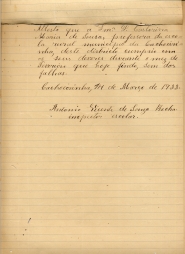 Attesto que a Exma. D. Carolina
Maria de Souza, professora da esco-
la rural municipal de Cachoei-
rinha, deste districto cumpriu com
os seus deveres durante o mez de
Fevereiro que hoje finda, sem dar
faltas.
Cachoeirinha, 1 de Março de 1933.
Antonio de Souza Rocha
inspector escolar.